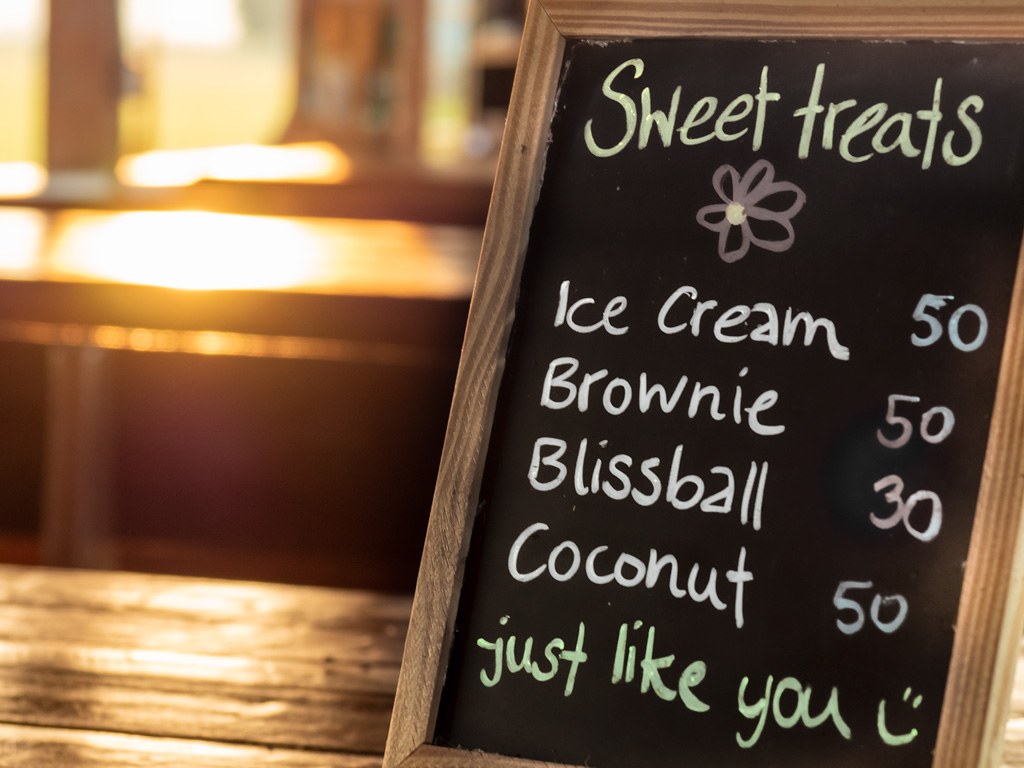 Sweet treats
Ice Cream 50
Brownie 50
Blissball 30
Coconut 50
just like you :)